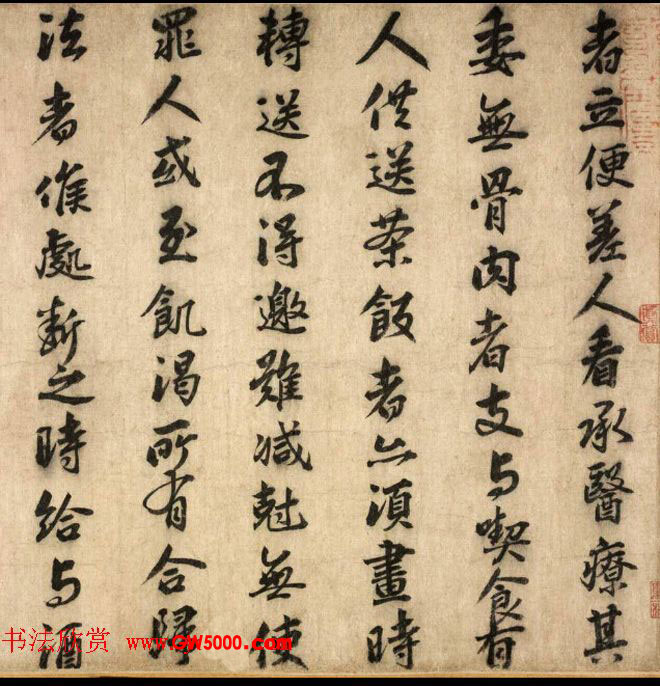 者立便差人看承醫療其
委無骨肉者支与喫食有
人供送茶飯者亦須畫時
轉送不得邀難減尅無使
罪人或至飢渴所有合歸
法者候處斷之時給与酒
书法欣赏 www.GW5000.com